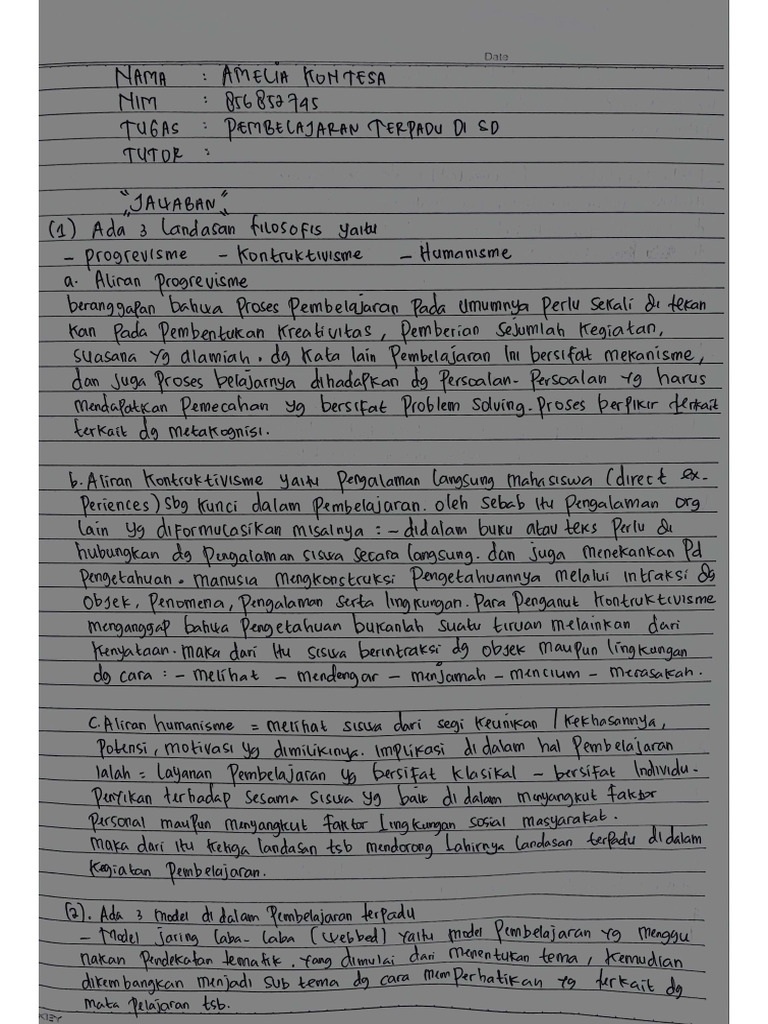 Date
NAMA : AMELIA KONTESA
NIM : 856852745
TUGAS : PEMBELAJARAN TERPADU DI SD
TUTOR :
"JAWABAN"
(1) Ada 3 Landasan filosofis yaitu
- progrevisme - Kontruktivisme - Humanisme
a. Aliran Progrevisme
beranggapan bahwa Proses Pembelajaran Pada umumnya Perlu Sekali di tekan
kan Pada Pembentukan Kreativitas, Pemberian Sejumlah Kegiatan,
suasana yg alamiah. dg Kata lain Pembelajaran Ini bersifat mekanisme,
dan juga Proses belajarnya dihadapkan dg Persoalan-Persoalan yg harus
mendapatkan Pemecahan yg bersifat Problem Solving. Proses berpikir terkait
terkait dg metakognisi.
b. Aliran Kontruktivisme yaitu Pengalaman Langsung mahasiswa (direct ex-
Periences) Sbg Kunci dalam Pembelajaran. oleh sebab itu Pengalaman org
lain yg diformulasikan misalnya : - didalam buku atau teks Perlu di
hubungkan dg Pengalaman siswa secara langsung. dan juga menekankan Pd
Pengetahuan. manusia mengkonstruksi Pengetahuannya melalui intraksi dg
Objek, Penomena, Pengalaman serta lingkungan. Para Penganut Kontruktivisme
menganggap bahwa Pengetahuan bukanlah suatu tiruan melainkan dari
Kenyataan. maka dari itu siswa berintraksi dg objek maupun lingkungan
dg cara : - melihat - mendengar - menjamah - mencium - merasakah.
C. Aliran humanisme = melihat siswa dari segi Keunikan / Kekhasannya,
Potensi, motivasi yg dimilikinya. Implikasi didalam hal Pembelajaran
Ialah = Layanan Pembelajaran yg bersifat klasikal - bersifat Individu.
Penyikan terhadap sesama siswa yg baik di dalam menyangkut faktor
Personal maupun menyangkut faktor lingkungan sosial masyarakat.
maka dari itu ketiga landasan tsb mendorong Lahirnya Landasan terpadu didalam
Kegiatan Pembelajaran.
(2). Ada 3 model di dalam Pembelajaran terpadu
- Model jaring laba-laba (webbed) yaitu model Pembelajaran yg menggu
nakan Pendekatan tematik. yang dimulai dari menentukan tema, Kemudian
dikembangkan menjadi Sub tema dg cara memperhatikan yg terkait dg
mata Pelajaran tsb.
KIEY